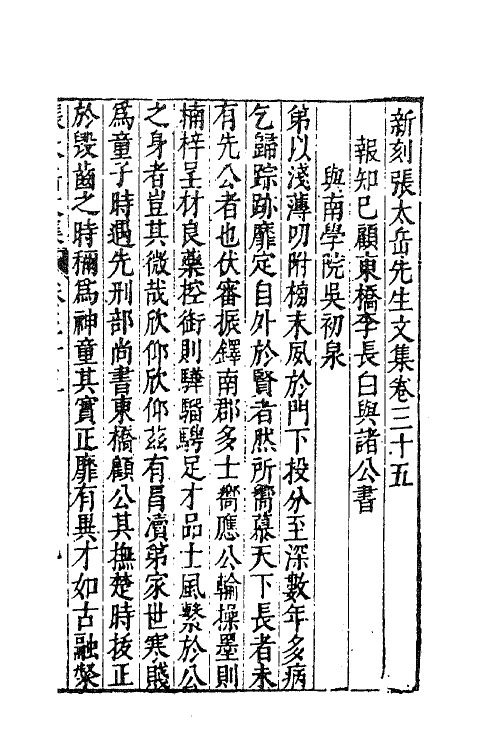 新刻張太岳先生文集卷三十五
報知己顧東橋李長白與諸公書
與南學院吳初泉
第以淺薄叨附榜末夙於門下投分至深數年多病
乞歸踪跡靡定自外於賢者然所嚮慕天下長者未
有先公者也伏審振鐸南郡多士嚮應公輸操墨則
楠梓呈材良藥控銜則驊騮騁足才品士風繫於公
之身者豈其微哉欣仰欣仰茲有冐瀆弟家世寒賤
爲童子時遇先刑部尚書東橋顧公其撫楚時拔正
於毀齒之時稱爲神童其實正靡有異才如古融粲